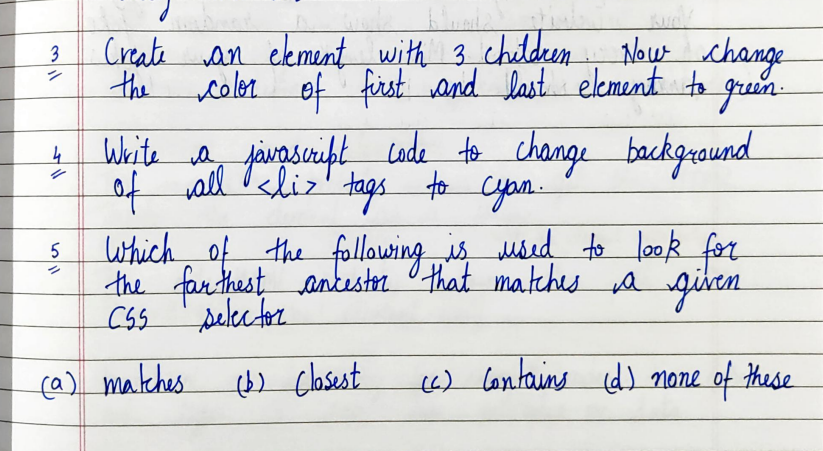 3 Create an element with 3 children. Now change
the color of first and last element to green.
4 Write a javascript code to change background
of all <li> tags to cyan.
5 Which of the following is used to look for
the farthest ancestor that matches a given
CSS selector
(a) matches (b) Closest (c) Contains (d) none of these